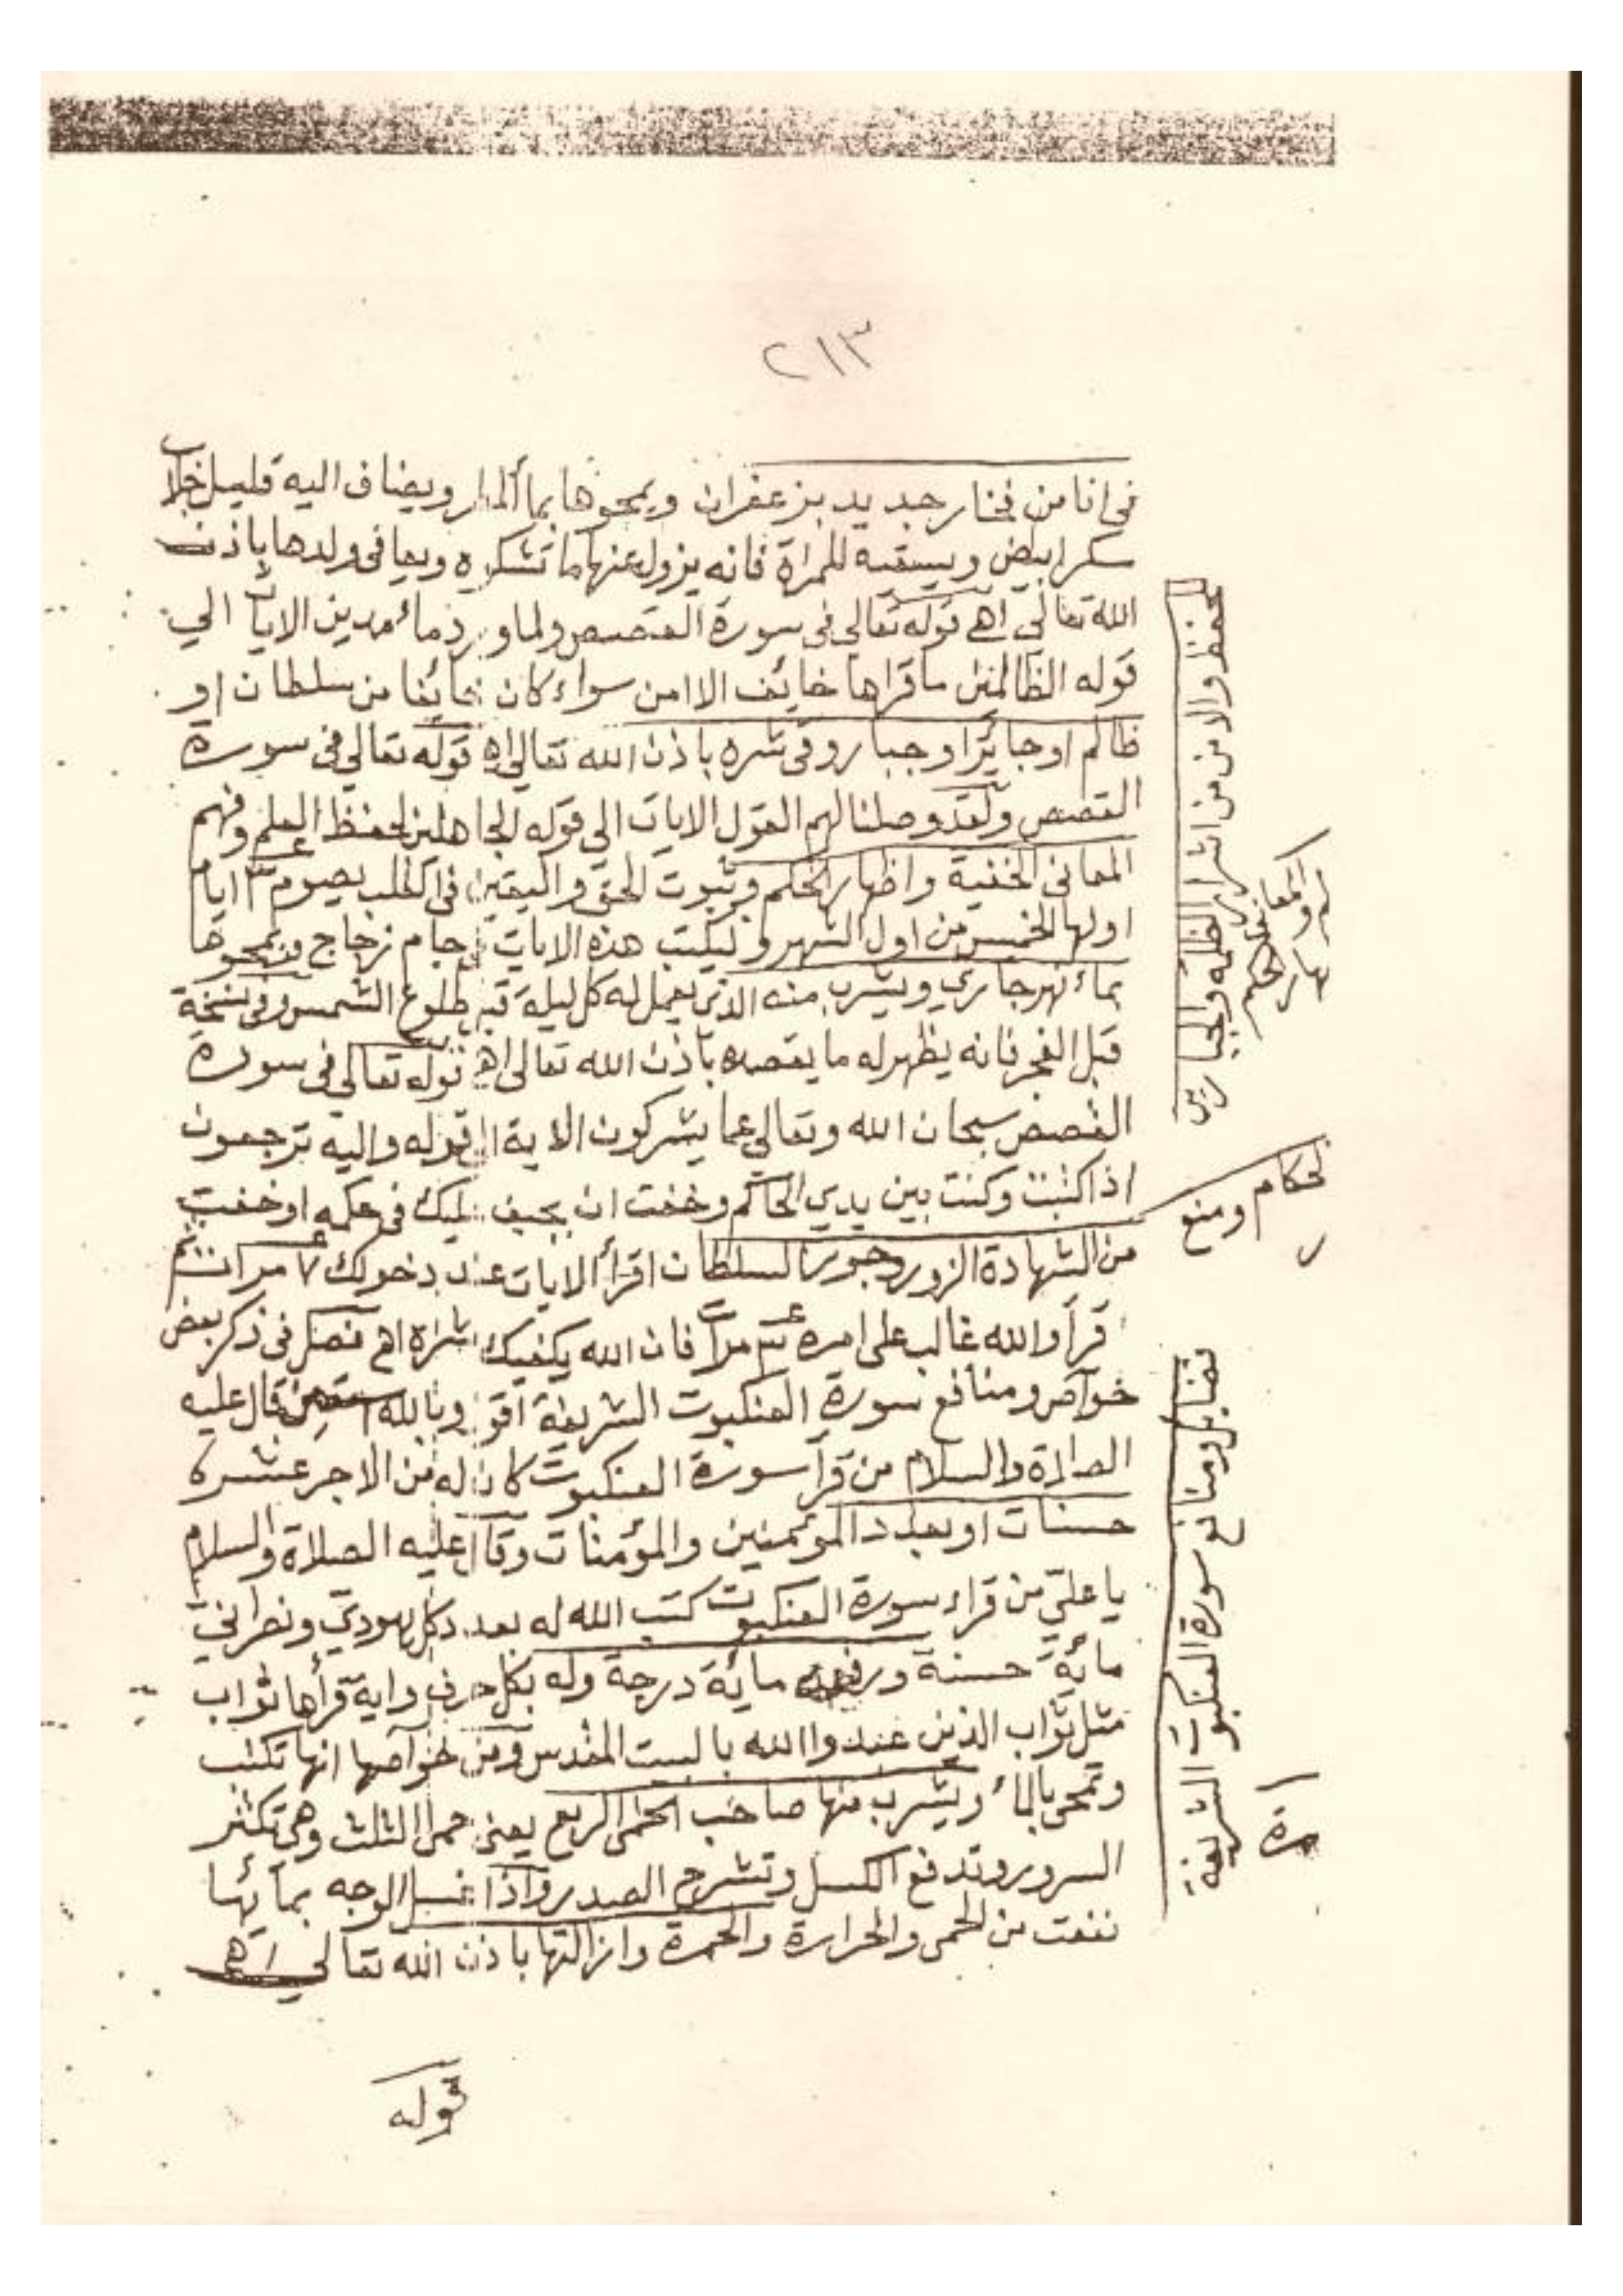 ٢١٣
في انا من فخار جديد بزعفران ويمحوها بمأ المار ويضاف اليه قليل جلاب
سكر ابيض ويسقيه للمراة فانه يزول عنها ما تشكيه ويعافى ولدها باذن
الله تعالى اهـ قوله تعالى فى سورة القصص ولما ورد مأ مدين الايات الي
قوله الظالمين ما قراها خايف الا امن سواء كان خائفا من سلطان او
ظالم او جايرا وجبار وقى شره باذن الله تعالى اهـ قوله تعالى فى سورة
القصص ولقد وصلنا لهم القول الايات الى قوله الجاهلين لحفظ العلم وفهم
المعانى الخفية واظهار الحكم وثبوت الحق واليقين فى الطلب يصوم ٣ ايام
اولها الخميس من اول الشهر وليكتب هذه الايات جام زجاج ويمحوها
بمأ نهر جاري ويشرب منه الذي يعمل له كل ليلة قبل طلوع الشمس وفى نسخة
قبل الفجر فانه يظهر له ما يقصده باذن الله تعالى اهـ قوله تعالى فى سورة
القصص سبحان الله وتعالى عما يشركون الاية الى قوله واليه ترجعون
اذا كنت وكنت بين يدي الحاكم وخفت ان يحيف عليك فى حكمه او خفت
من الشهادة الزور وجور السلطان اقرأ الايات عند دخولك ٧ مرات ثم
قرأ والله غالب على امره ٣ مرات فان الله يكفيك شره اهـ فصل فى ذكر بعض
خواص ومنافع سورة العنكبوت الشريفة اقول وبالله استعين قال عليه
الصلاة والسلام من قرأ سورة العنكبوت كان له من الاجر عشرة
حسنات او بعدد المؤممنين والمؤمنات وقال عليه الصلاة والسلام
يا علي من قراء سورة العنكبوت كتب الله له بعدد كل يهودي ونصراني
مائة حسنة ورفع له مائة درجة وله بكل حرف واية قرأها ثواب
مثل ثواب الذين عبدوا الله بالبيت المقدس ومن خواصها انها تكتب
وتمحى بالمأ ويشرب منها صاحب الحمى الربع يعنى حمى الثلث وهى تكثر
السرور وتدفع الكسل وتشرح الصدر واذا غسل الوجه بمائها
نفعت من الحمى والحرارة والحمرة وازالتها باذن الله تعالى اهـ
قوله
للحفظ والامن من اشرار الظلمه والجبارين
لحكام ومنع
فضايل ومنافع سورة العنكبوت الشريفة